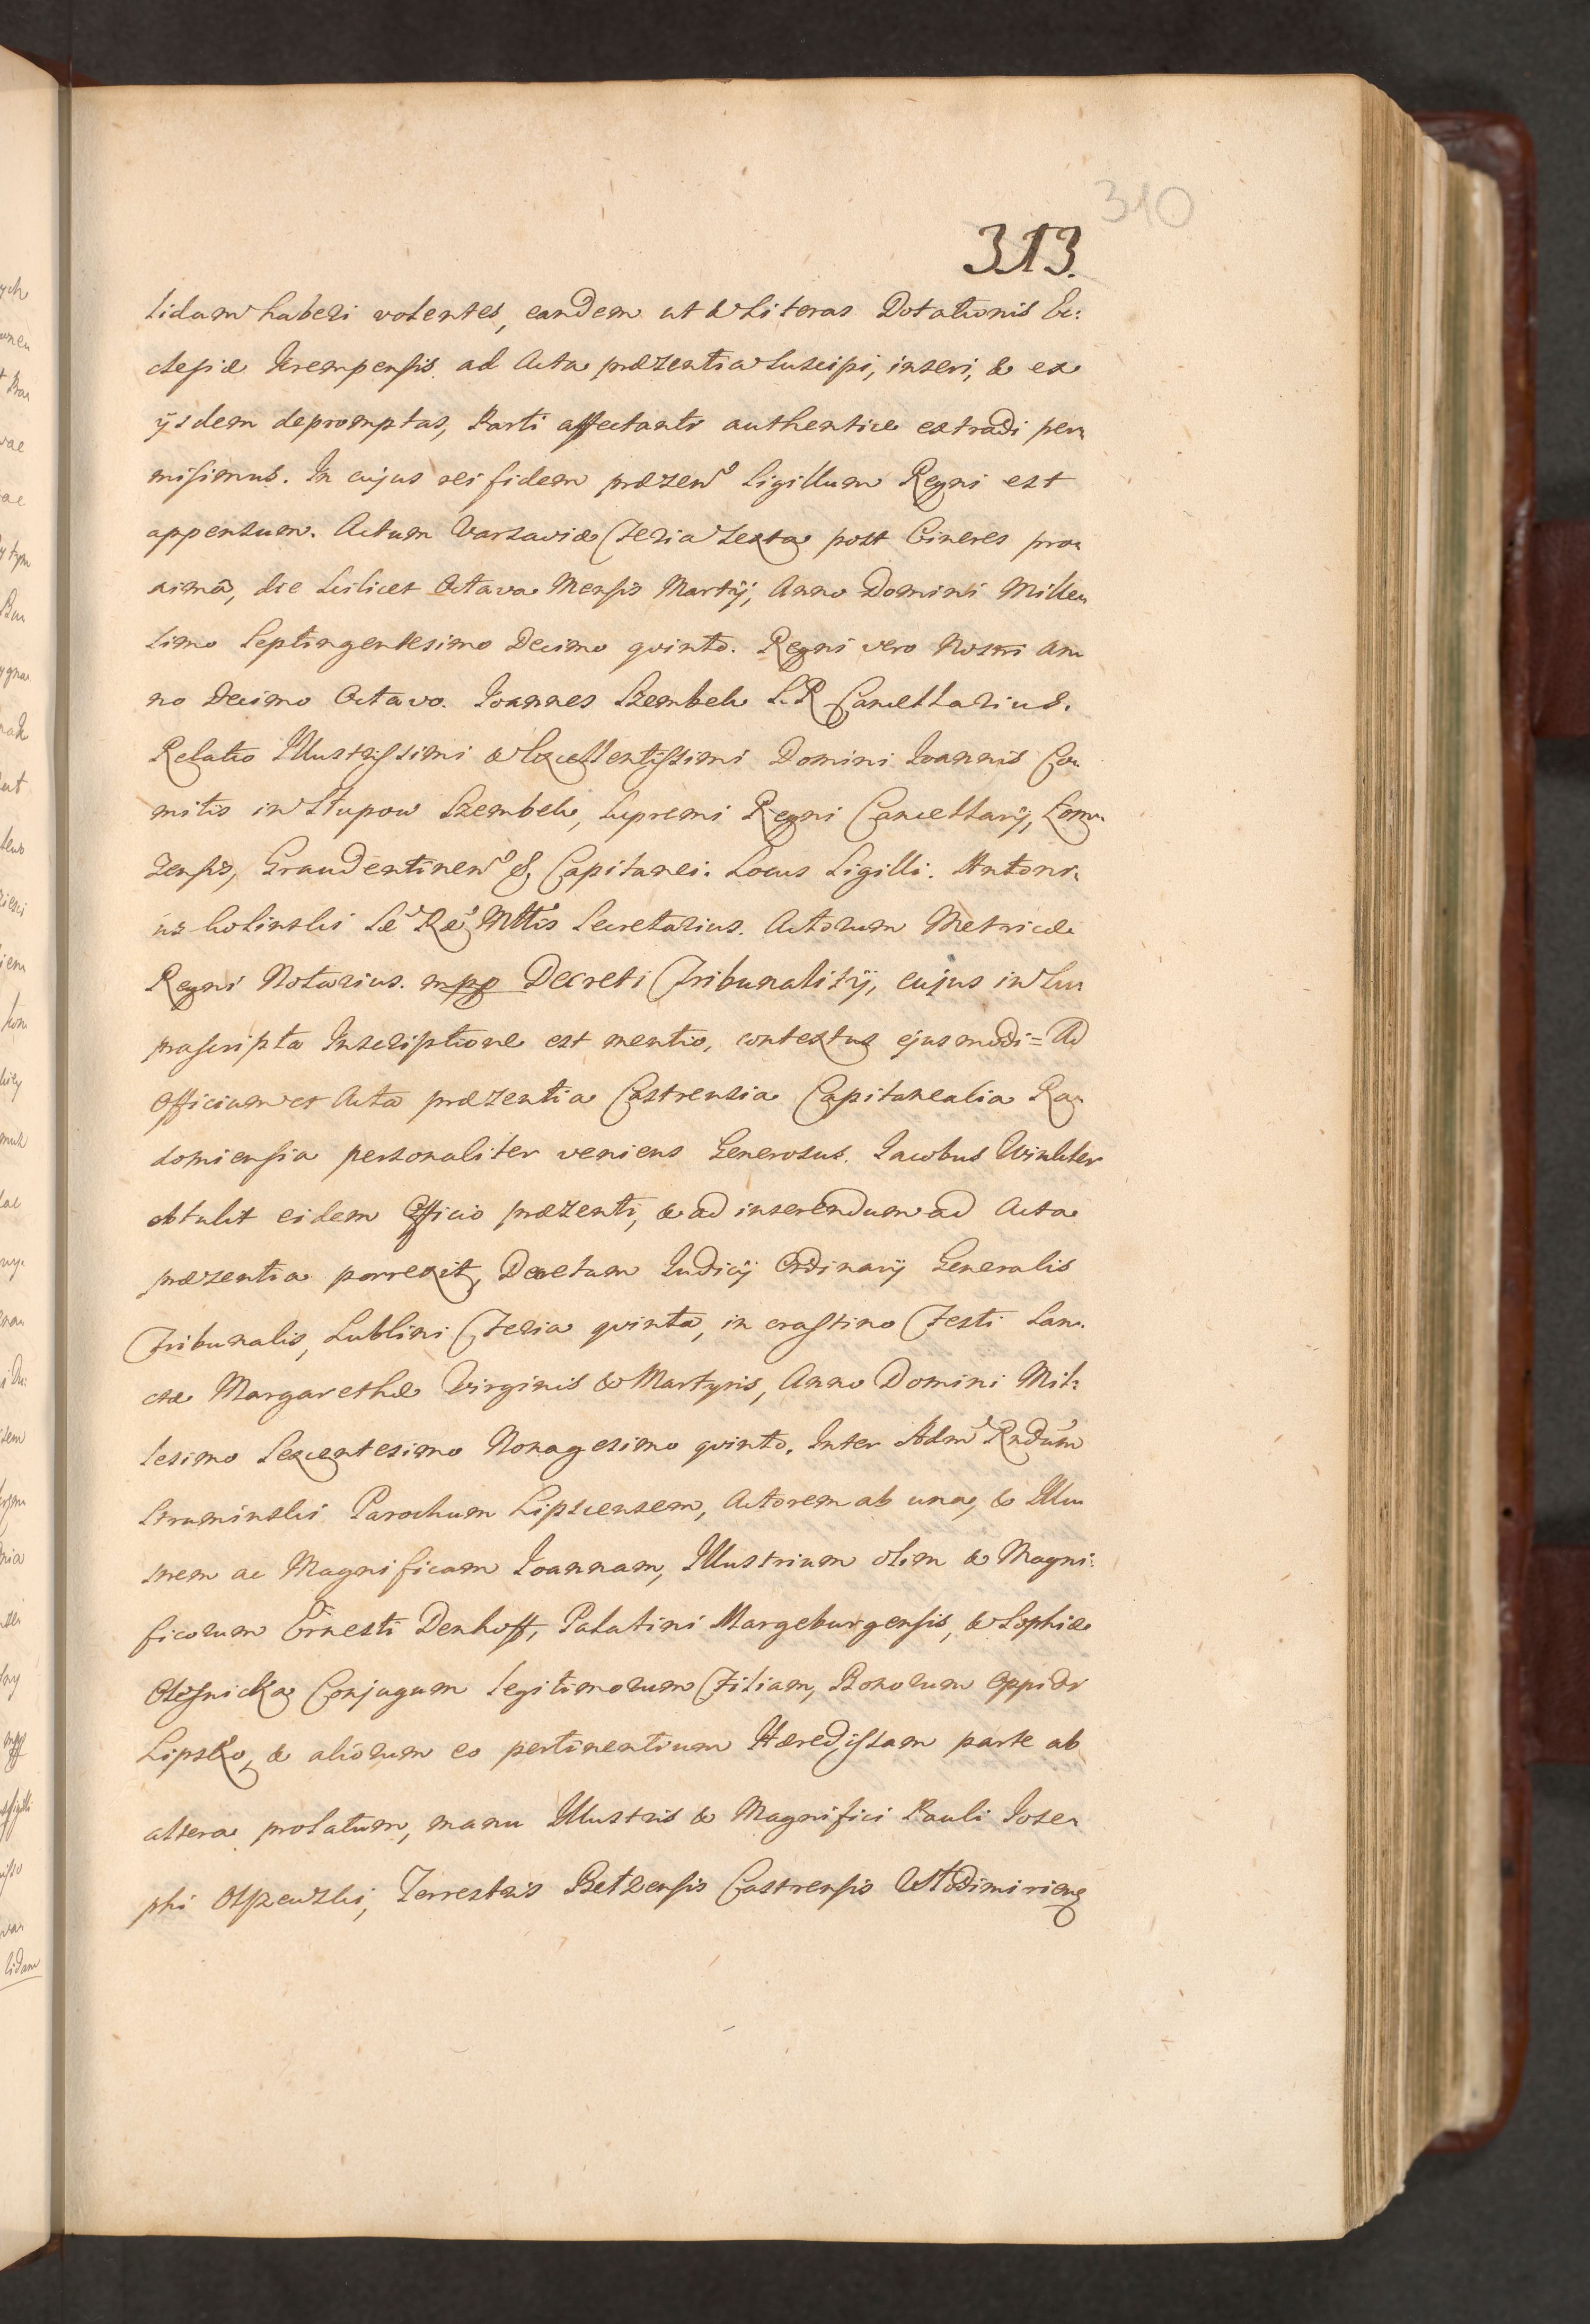 310
313.
lidam haberi volentes, eandem ut & Literas Dotationis Ec:
clesiæ Krempensis ad Acta præzentia Suscipi, inseri, & ex
ijsdem depromptas, Parti affectanti authentice extradi per=
misimus. In cujus rei fidem præzen Sigillum Regni est
appensum. Actum Varsaviæ Feria Sexta post Cineres pro=
xima, die Scilicet Octava Mensis Martij, Anno Domini Mille=
simo Septingentesimo Decimo qvinto. Regni vero Nostri An=
no Decimo Octavo. Joannes Szembek S. R Cancellarius.
Relatio Illustrissimi & Excellentissimi Domini Joannis Co=
mitis in Słupow Szembek, Supremi Regni Cancellarij, Łom=
zensis, Graudentinen &c Capitanei. Locus Sigilli. Antoni=
us Sæ Ræ Mttis Secretarius. Actorum Metricæ
Regni Notarius. mpp Decreti Tribunalitij, cujus in Su=
prascripta Inscriptione est mentio, contextus ejusmodi = Ad
Officium et Acta præzentia Castrensia Capitanealia Ra=
domiensia personaliter veniens Generosus. Jacobus Winkler
obtulit eidem Officio præzenti, & ad inserendum ad Acta
præzentia porrexit, Decretum Judicij Ordinarij Generalis
Tribunalis, Lublini Feria qvinta, in crastino Festi San=
ctæ Margarethæ Virginis & Martyris, Anno Domini Mil=
lesimo Sexcentesimo Nonagesimo qvinto. Inter Adm Rndum
Struminski Parochum Lipscensem, Actorem ab una, & Illu=
strem ac Magnificam Joannam, Illustrium olim & Magni=
ficorum Ernesti Denhoff, Palatini Margeburgensis, & Sophiæ
Olesnicka Conjugum legitimorum Filiam, Bonorum Oppidi
Lipsko, & aliorum eo pertinentium Hæredissam parte ab
altera prolatum, manu Illustris & Magnifici Pauli Jose=
phi Olszewski, Terrestris Betzensis Castrensis Włodimirien